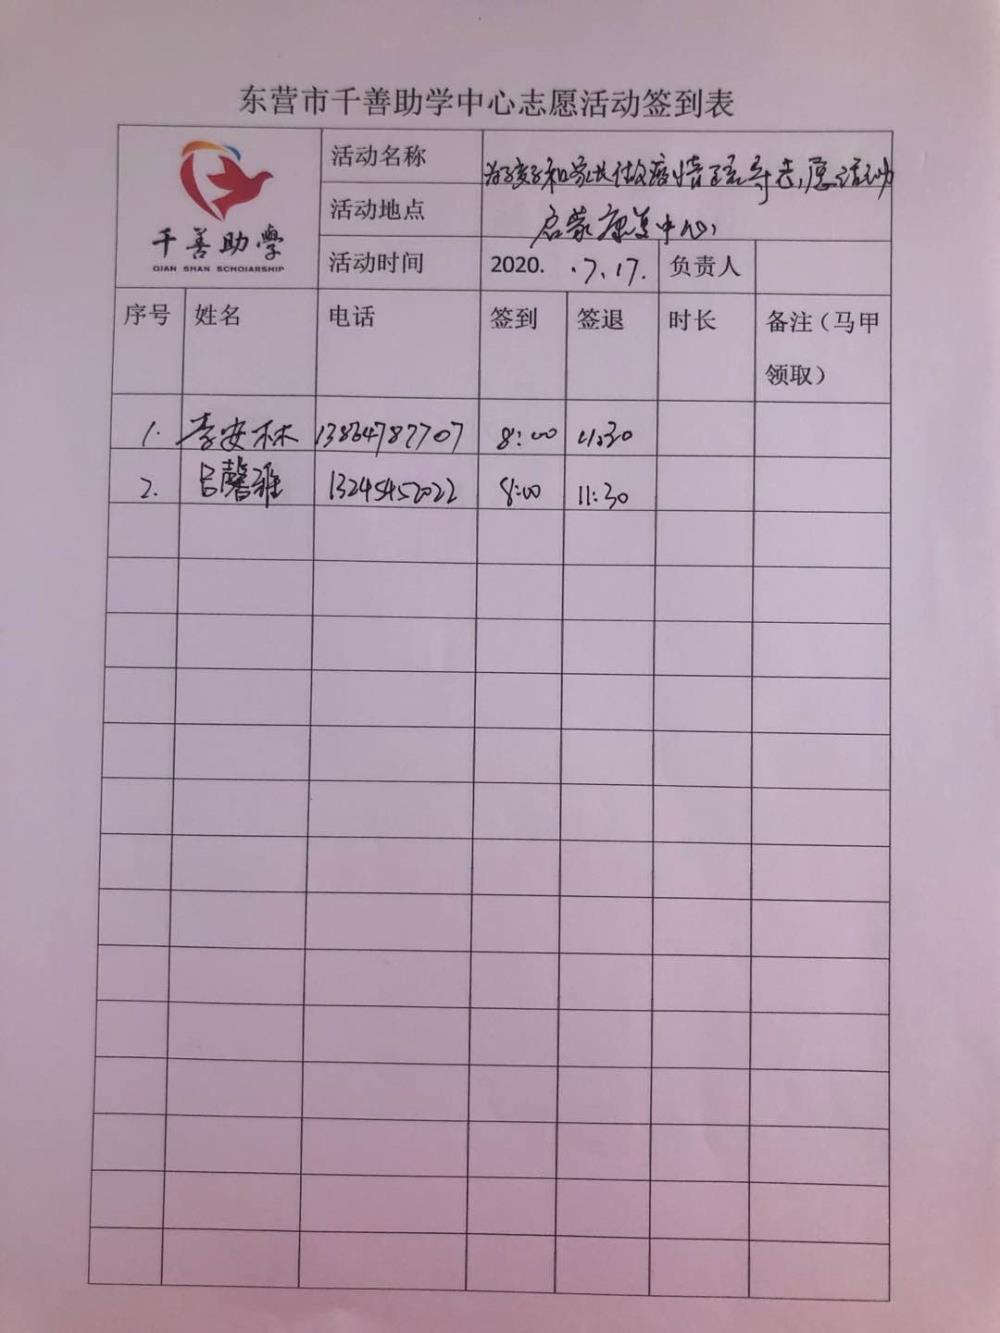 东营市千善助学中心志愿活动签到表
千善助學
QIAN SHAN SCHOlARSHIP
活动名称 为孩子和家长做疫情 志愿活动
活动地点 启蒙康复中心
活动时间 2020. .7.17. 负责人
序号 姓名 电话 签到 签退 时长 备注（马甲
领取）
1. 李安林 13864787707 8:00 11:30
2. 吕馨雅 13245452022 8:00 11:30